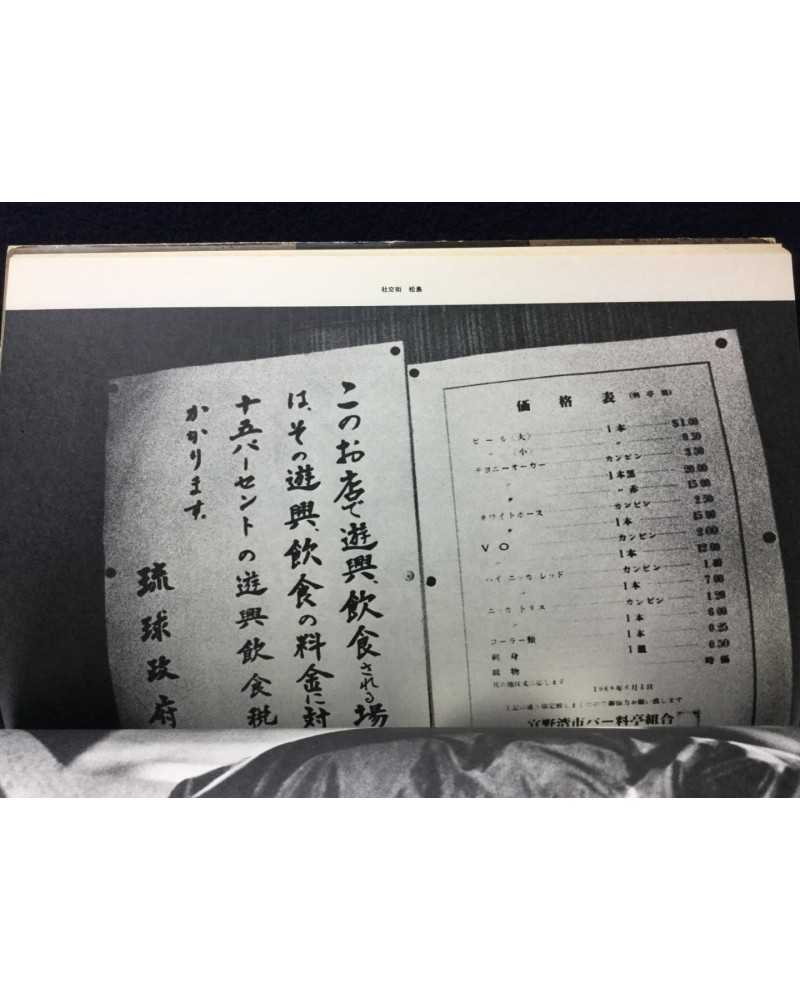 社交街 松島
このお店で遊興、飲食される場
は、その遊興、飲食の料金に対
十五パーセントの遊興飲食税
かかります。
琉球政府
価格表
ビール(大) 1本 $1.00
〃 (小) 〃 0.50
チョニーオーカー カンビン 3.50
〃 1本黒 20.00
〃 〃赤 15.00
ホワイトホース カンビン 2.50
〃 1本 15.00
VO カンビン 2.00
1本 12.00
ハイニッカ レッド カンビン
〃 1本 7.00
ニッカ トリス カンビン 1.20
〃 1本 6.00
コーラー類 1本 0.25
刺身 1皿 0.50
時価
宜野湾市バー料亭組合